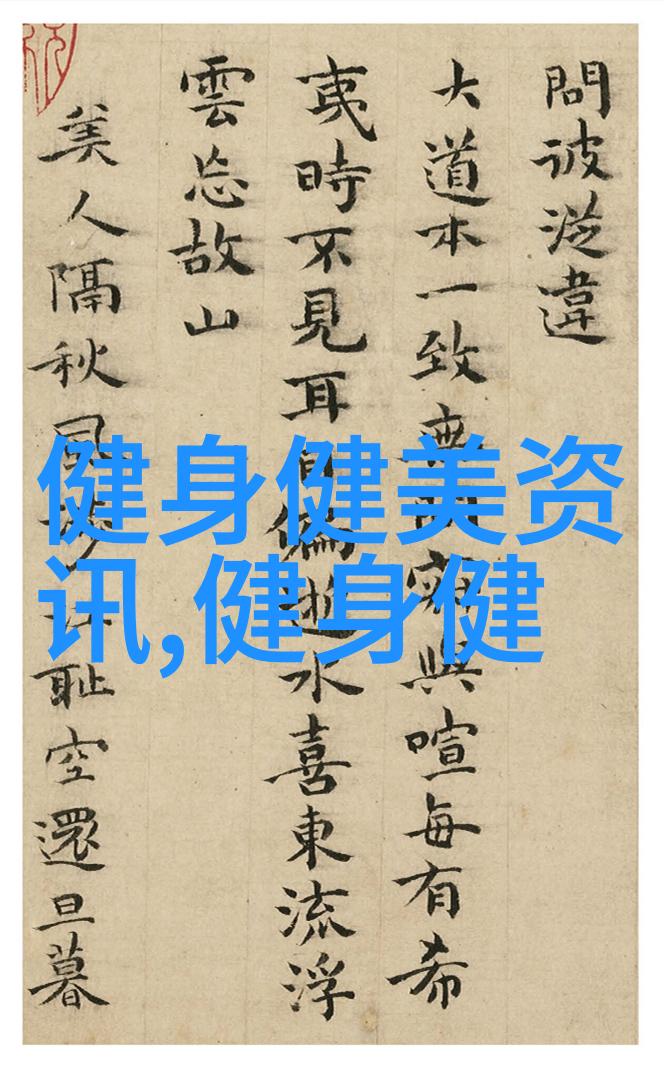 問彼從違
大道本一致 與喧每有希
夷時不見耳 逝水喜東流浮
雲忘故山
美人隔秋風 耻空還旦暮
健身健美资
讯,健身健